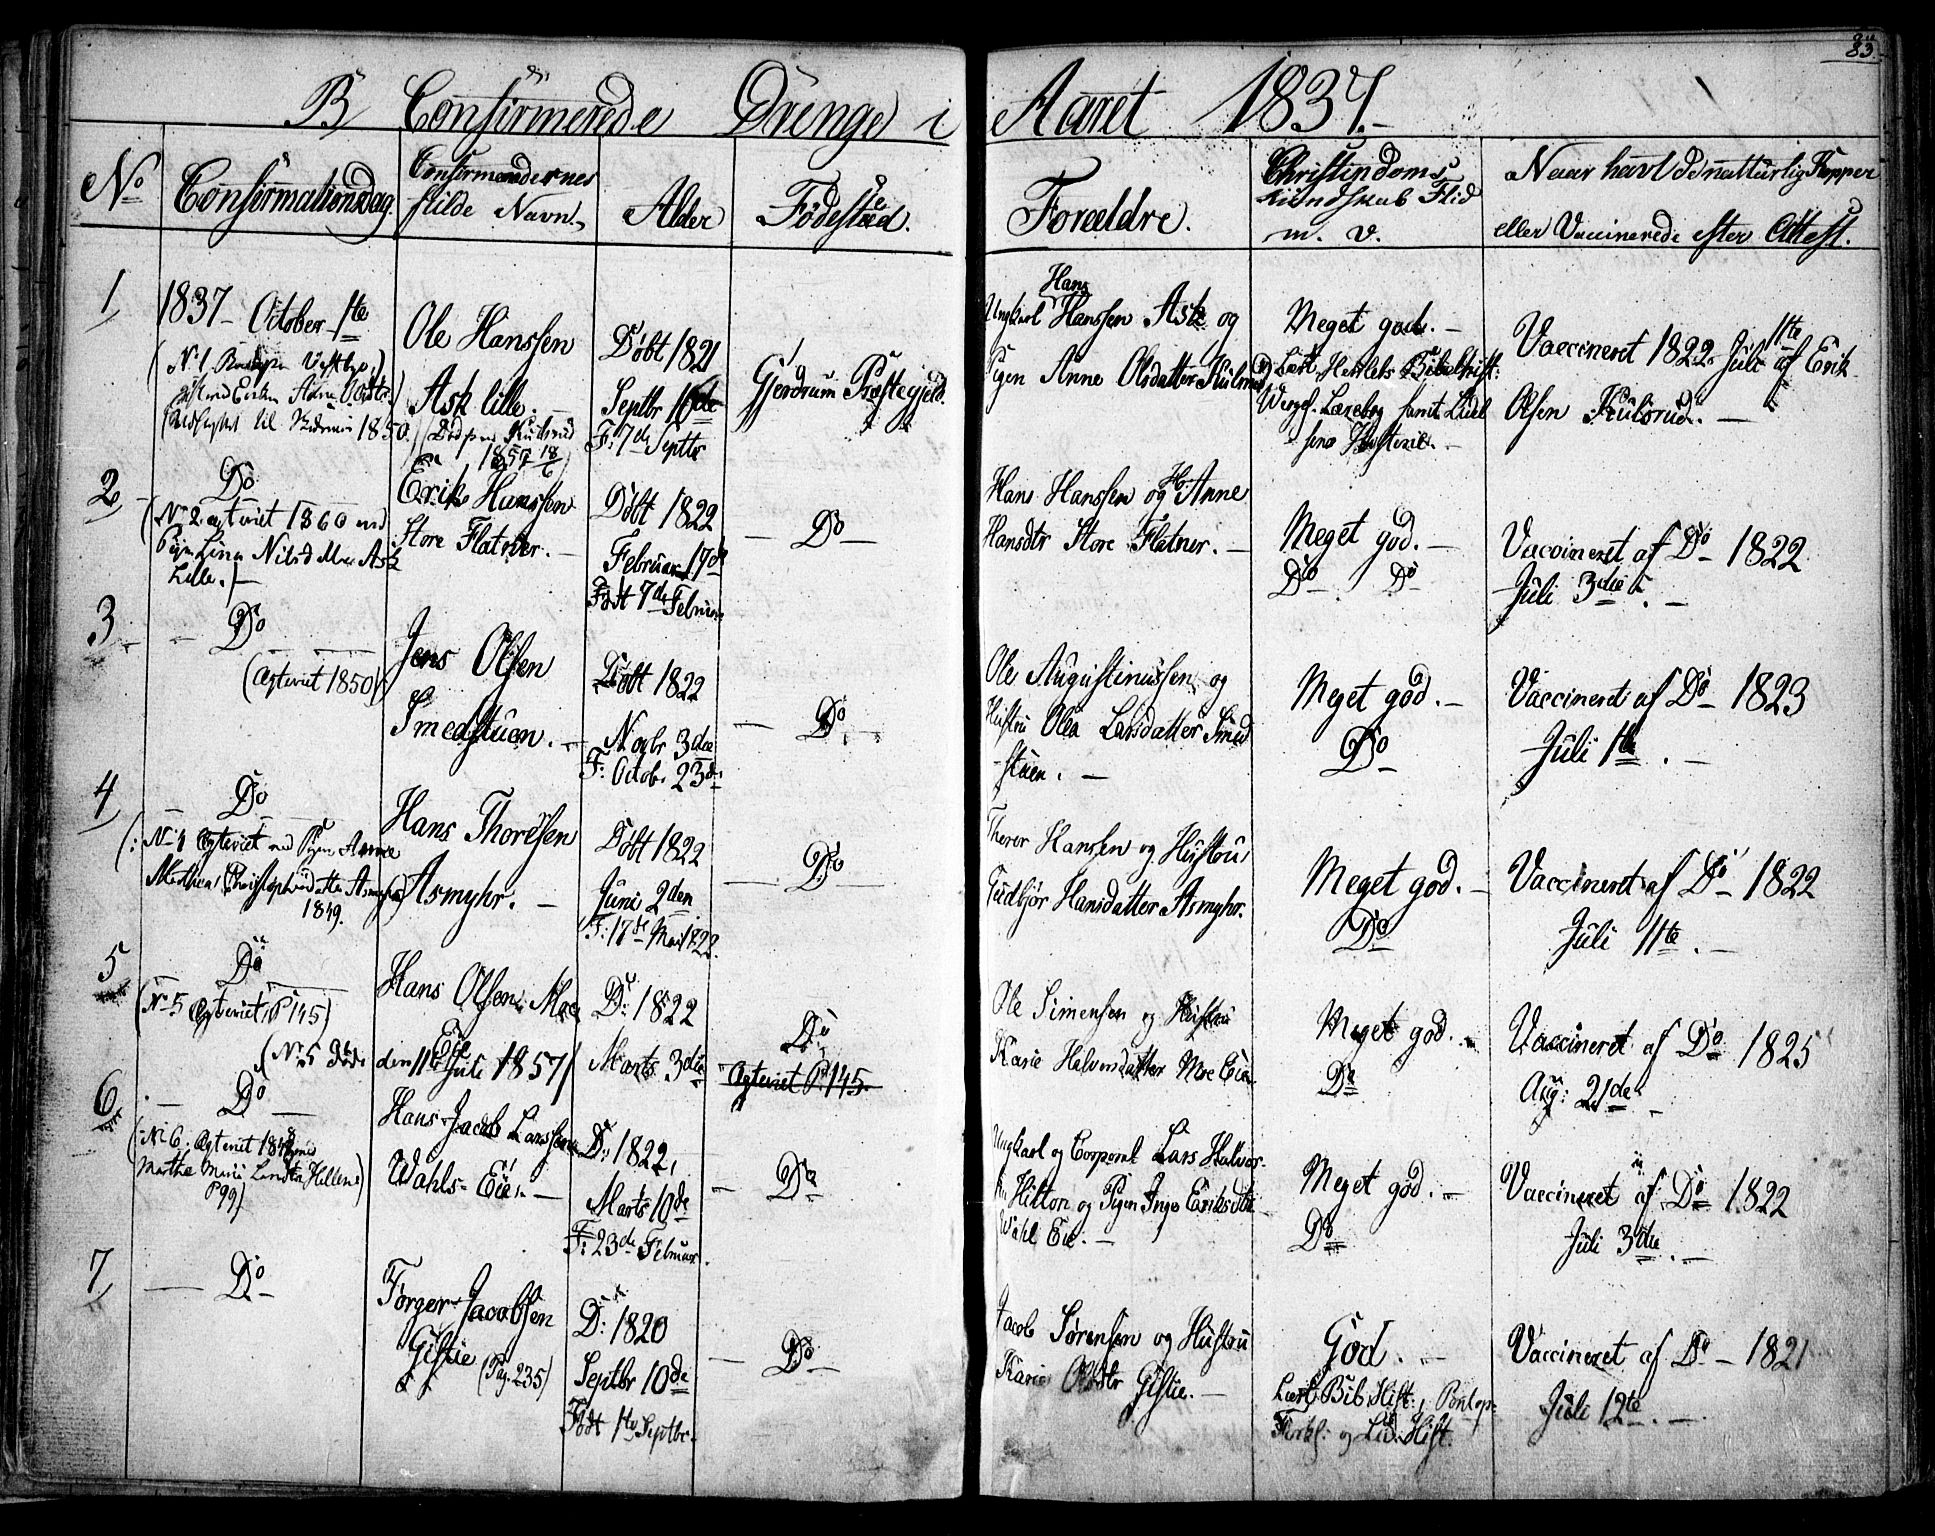 83
B Confirmerede Drenge i Aaret 1837.
No
Confirmationsdag.
Confirmeredernes
fulde Navn.
Alder
Fødested.
Forældre.
Christendoms
Kundskab Flid
m. v.
Naar havt d naturlig Kopper
eller Vaccinerede efter Attest.
1
1837 October 1te
1850
Ole Hanssen
Ask lille.
1857 18/6
Døbt 1821
Septbr 16de
F: 7de Septbr
Gjerdrum Præstegjeld.
Hans
Ungkarl Hanssen Ask og
Pigen Anne Olsdatter Kulsrud
Meget god. —
Læst Herslebs Bibelhist:
Wexels. Læsebog samt
Vaccineret 1822 Juli 11te af Erik
Olsen Kulsrud. —
2
Do
(No 2 agteviet 1860 med
Pigen Lina Nilsd Moe Ask
Lille.) —
Erik Hanssen
Store Flatner. —
Døbt 1822
Februar 17de
Født 7de Februar
— Do —
Hans Hanssen og H: Anne
Hansdtr Store Flatner. —
Meget god. —
Do Do
Vaccineret af Do 1822
Juli 3die. —
3
— Do
(Agteviet 1850)
Jens Olsen
Smedstuen. —
Døbt 1822
Novbr 3die
F: Octob. 23de
— Do —
Ole Augustinussen og
Hustru Olea Larsdatter Smed
stuen. —
Meget god. —
Do
Vaccineret af Do 1823
Juli 1te. —
4
— Do —
(: No 4 Agteviet med Pigen Anne
Mathea Christophersdatter Asmyhr)
1849.
Hans Thoresen
Asmyhr. —
Døbt 1822
Juni 2den
F: 17de Mai 1822.
— Do —
Thorer Hanssen og Hustru
Gudbjør Hansdatter Asmyhr.
Meget god. —
Do
Vaccineret af Do 1822
Juli 11te. —
5
Do
(No 5 Agteviet, P 145)
(No 5 Døde den 11te Juli 1857)
Hans Olsen Moe
Eie
D: 1822
Marts 3die
Do
Agteviet P. 145
Ole Simensen og Hustru
Karie Halvorsdatter Moe Eie
Meget god. —
Do
Vaccineret af Do 1825
Aug: 21de —
6
— Do —
(: No 6. Agteviet 1848 med
Marthe Marie
P 99)
Hans Jacob Larssen
Wahls-Eie. —
D: 1822,
Marts 10de
F: 23de Februar.
— Do —
Ungkarl og Corporal Lars Halvor-
sen Hilton og Pigen Inge Eriksdtr
Wahl Eie. —
Meget god. —
Do
Vaccineret af Do 1822
Juli 3die. —
7
— Do —
Torger Jacobsen
Gistie (Pag. 235)
D: 1820
Septbr 10de
Født 1te Septbr.
— Do —
Jacob Sørensen og Hustru
Karie Olsdtr Gistie. —
God. —
Læst Bib. Hist:, Pontop:
Forkl: og Hist.
Vaccineret af Do — 1821
Juli 12te. —